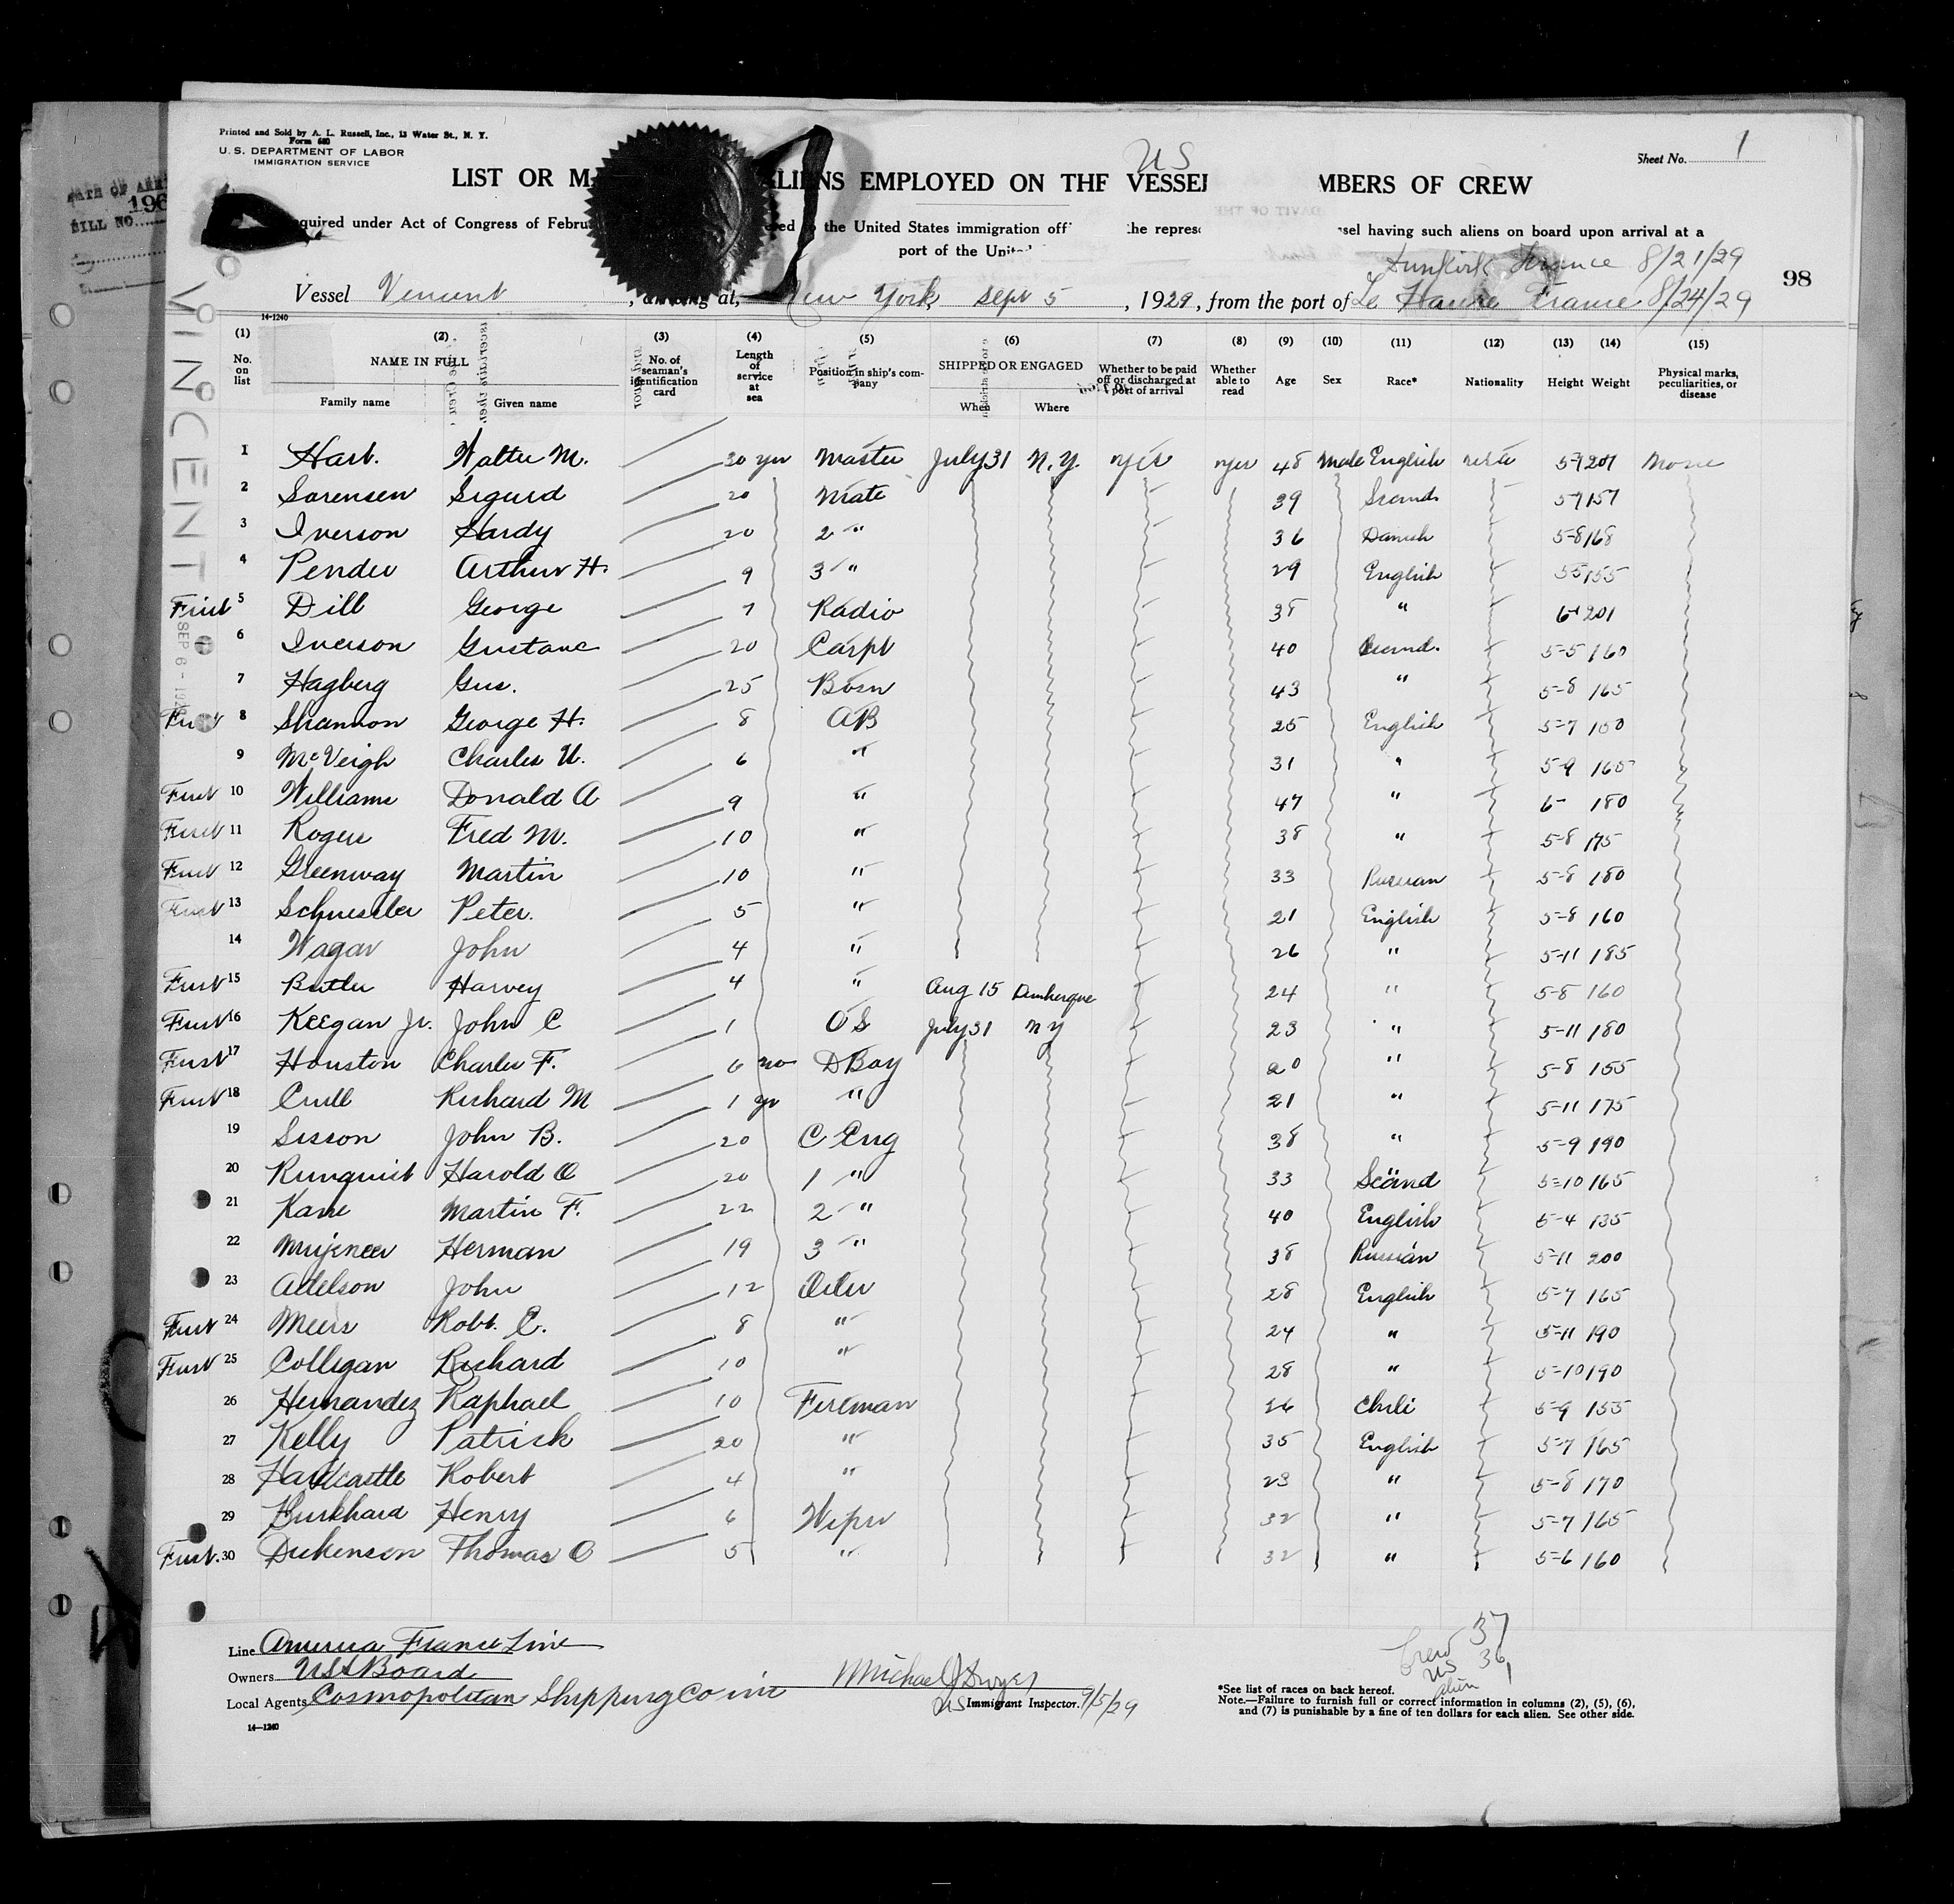 Printed and Sold by A. L. Russell, Inc., 13 Water St., N. Y.
Form 680
U. S. DEPARTMENT OF LABOR
IMMIGRATION SERVICE
Sheet No. 1
US
LIST OR M ALIENS EMPLOYED ON THE VESSEL MBERS OF CREW
quired under Act of Congress of Febru ered to the United States immigration off the repres sel having such aliens on board upon arrival at a
port of the Unit
Dunkirk France 8/21/29
Vessel Vincent , arriving at, New York Sept 5 , 1929, from the port of Le Havre France 8/24/29
98
VINCENT
14-1240
(1) (2) (3) (4) (5) (6) (7) (8) (9) (10) (11) (12) (13) (14) (15)
No. on list NAME IN FULL Family name Given name No. of seaman's identification card Length of service at sea Position in ship's company SHIPPED OR ENGAGED When Where Whether to be paid off or discharged at port of arrival Whether able to read Age Sex Race* Nationality Height Weight Physical marks, peculiarities, or disease
1 Hart. Walter M. 30 yrs Master July 31 N.Y. yes yes 48 Male English 201 None
2 Sorensen Sigurd 20 Mate 39 Scand. 5-7 157
3 Iverson Hardy 20 2 " 36 Danish 5-8 168
4 Pender Arthur H. 9 3 " 29 English 5-5 155
First 5 Dill George 7 Radio 38 " 201
6 Iverson Gustave 20 Carpt 40 Scand. 5-5 160
7 Hagberg Gus. 25 Bosn 43 " 5-8 165
8 Shannon George H. 8 AB 25 English 5-7 150
9 McVeigh Charles U. 6 " 31 " 5-9 165
First 10 Williams Donald A 9 " 47 " 6- 180
First 11 Rogers Fred M. 10 " 38 " 5-8 175
First 12 Greenway Martin 10 " 33 Russian 5-8 180
First 13 Schuessler Peter. 5 " 21 English 5-8 160
14 Wagar John 4 " 26 " 5-11 185
First 15 Butler Harvey 4 " Aug 15 Dunkerque 24 " 5-8 160
First 16 Keegan Jr. John C 1 OS July 31 NY 23 " 5-11 180
First 17 Houston Charles F. 6 mo D Boy 20 " 5-8 155
First 18 Crull Richard M 1 yr " 21 " 5-11 175
19 Sisson John B. 20 C Eng 38 " 5-9 190
20 Runquist Harold O 20 1 " 33 Scand 5-10 165
21 Kane Martin F. 22 2 " 40 English 5-4 135
22 Herman 19 3 " 38 Russian 5-11 200
23 Adelson John 12 Oiler 28 English 5-7 165
First 24 Meers Robt. E. 8 " 24 " 5-11 190
First 25 Colligan Richard 10 " 28 " 5-10 190
26 Hernandez Raphael 10 Fireman 26 Chili 5-9 155
27 Kelly Patrick 20 " 35 English 5-7 165
28 Hardcastle Robert 4 " 23 " 5-8 170
29 Burkhard Henry 6 Wiper 32 " 5-7 165
First. 30 Dickenson Thomas O 5 " 32 " 5-6 160
Line America France Line
Owners USS Board
Local Agents Cosmopolitan Shipping Co inc
Michael J Dwyer
US Immigrant Inspector. 9/5/29
Crew 37
US 36
alien 1
*See list of races on back hereof.
Note.—Failure to furnish full or correct information in columns (2), (5), (6),
and (7) is punishable by a fine of ten dollars for each alien. See other side.
14—1240